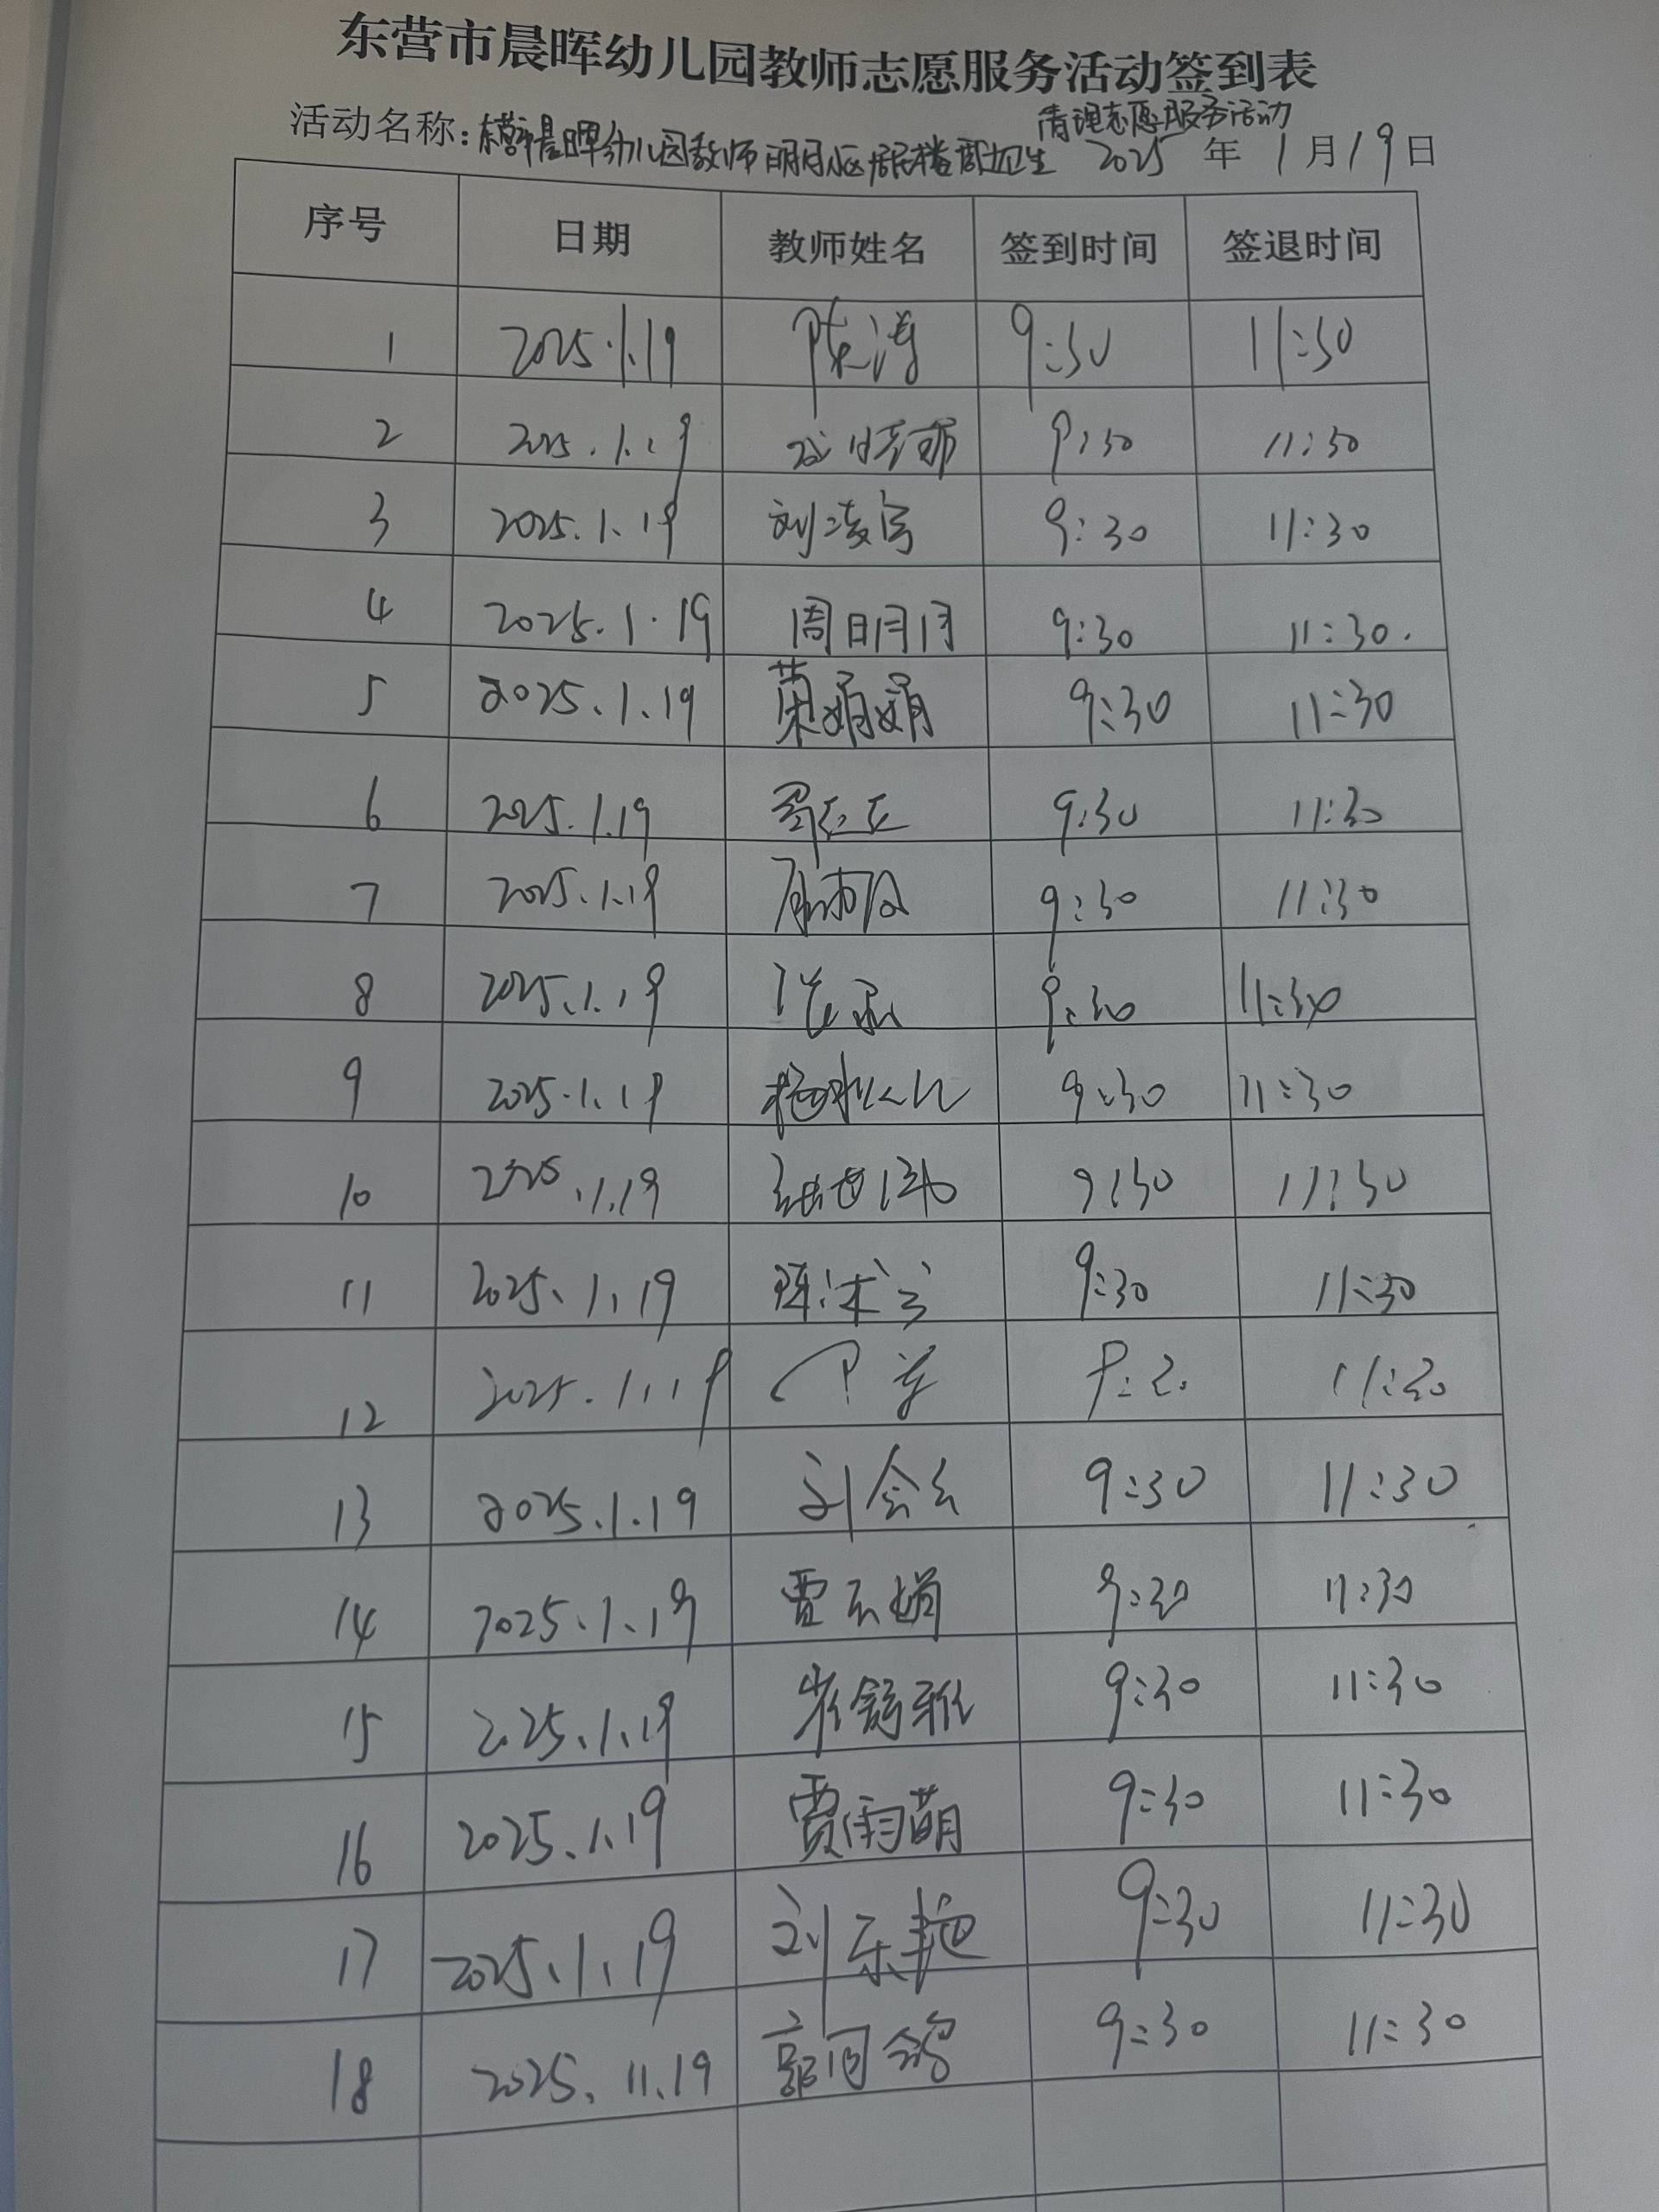 东营市晨晖幼儿园教师志愿服务活动签到表
清理志愿服务活动
活动名称：东营市晨晖幼儿园教师明月小区居民楼周边卫生 2025 年 1 月 19 日
序号 日期 教师姓名 签到时间 签退时间
1 2025.1.19 陈涛 9:30 11:30
2 2025.1.19 9:30 11:30
3 2025.1.19 刘凌宇 9:30 11:30
4 2025.1.19 周明月 9:30 11:30.
5 2025.1.19 荣娟娟 9:30 11:30
6 2025.1.19 9:30 11:30
7 2025.1.19 9:30 11:30
8 2025.1.19 9:30 11:30
9 2025.1.19 9:30 11:30
10 2025.1.19 9:30 11:30
11 2025.1.19 9:30 11:30
12 2025.1.19
13 2025.1.19 刘会云 9:30 11:30
14 2025.1.19 贾云娟 9:30 11:30
15 2025.1.19 崔舒雅 9:30 11:30
16 2025.1.19 贾雨萌 9:30 11:30
17 2025.1.19 刘东艳 9:30 11:30
18 2025.11.19 9:30 11:30